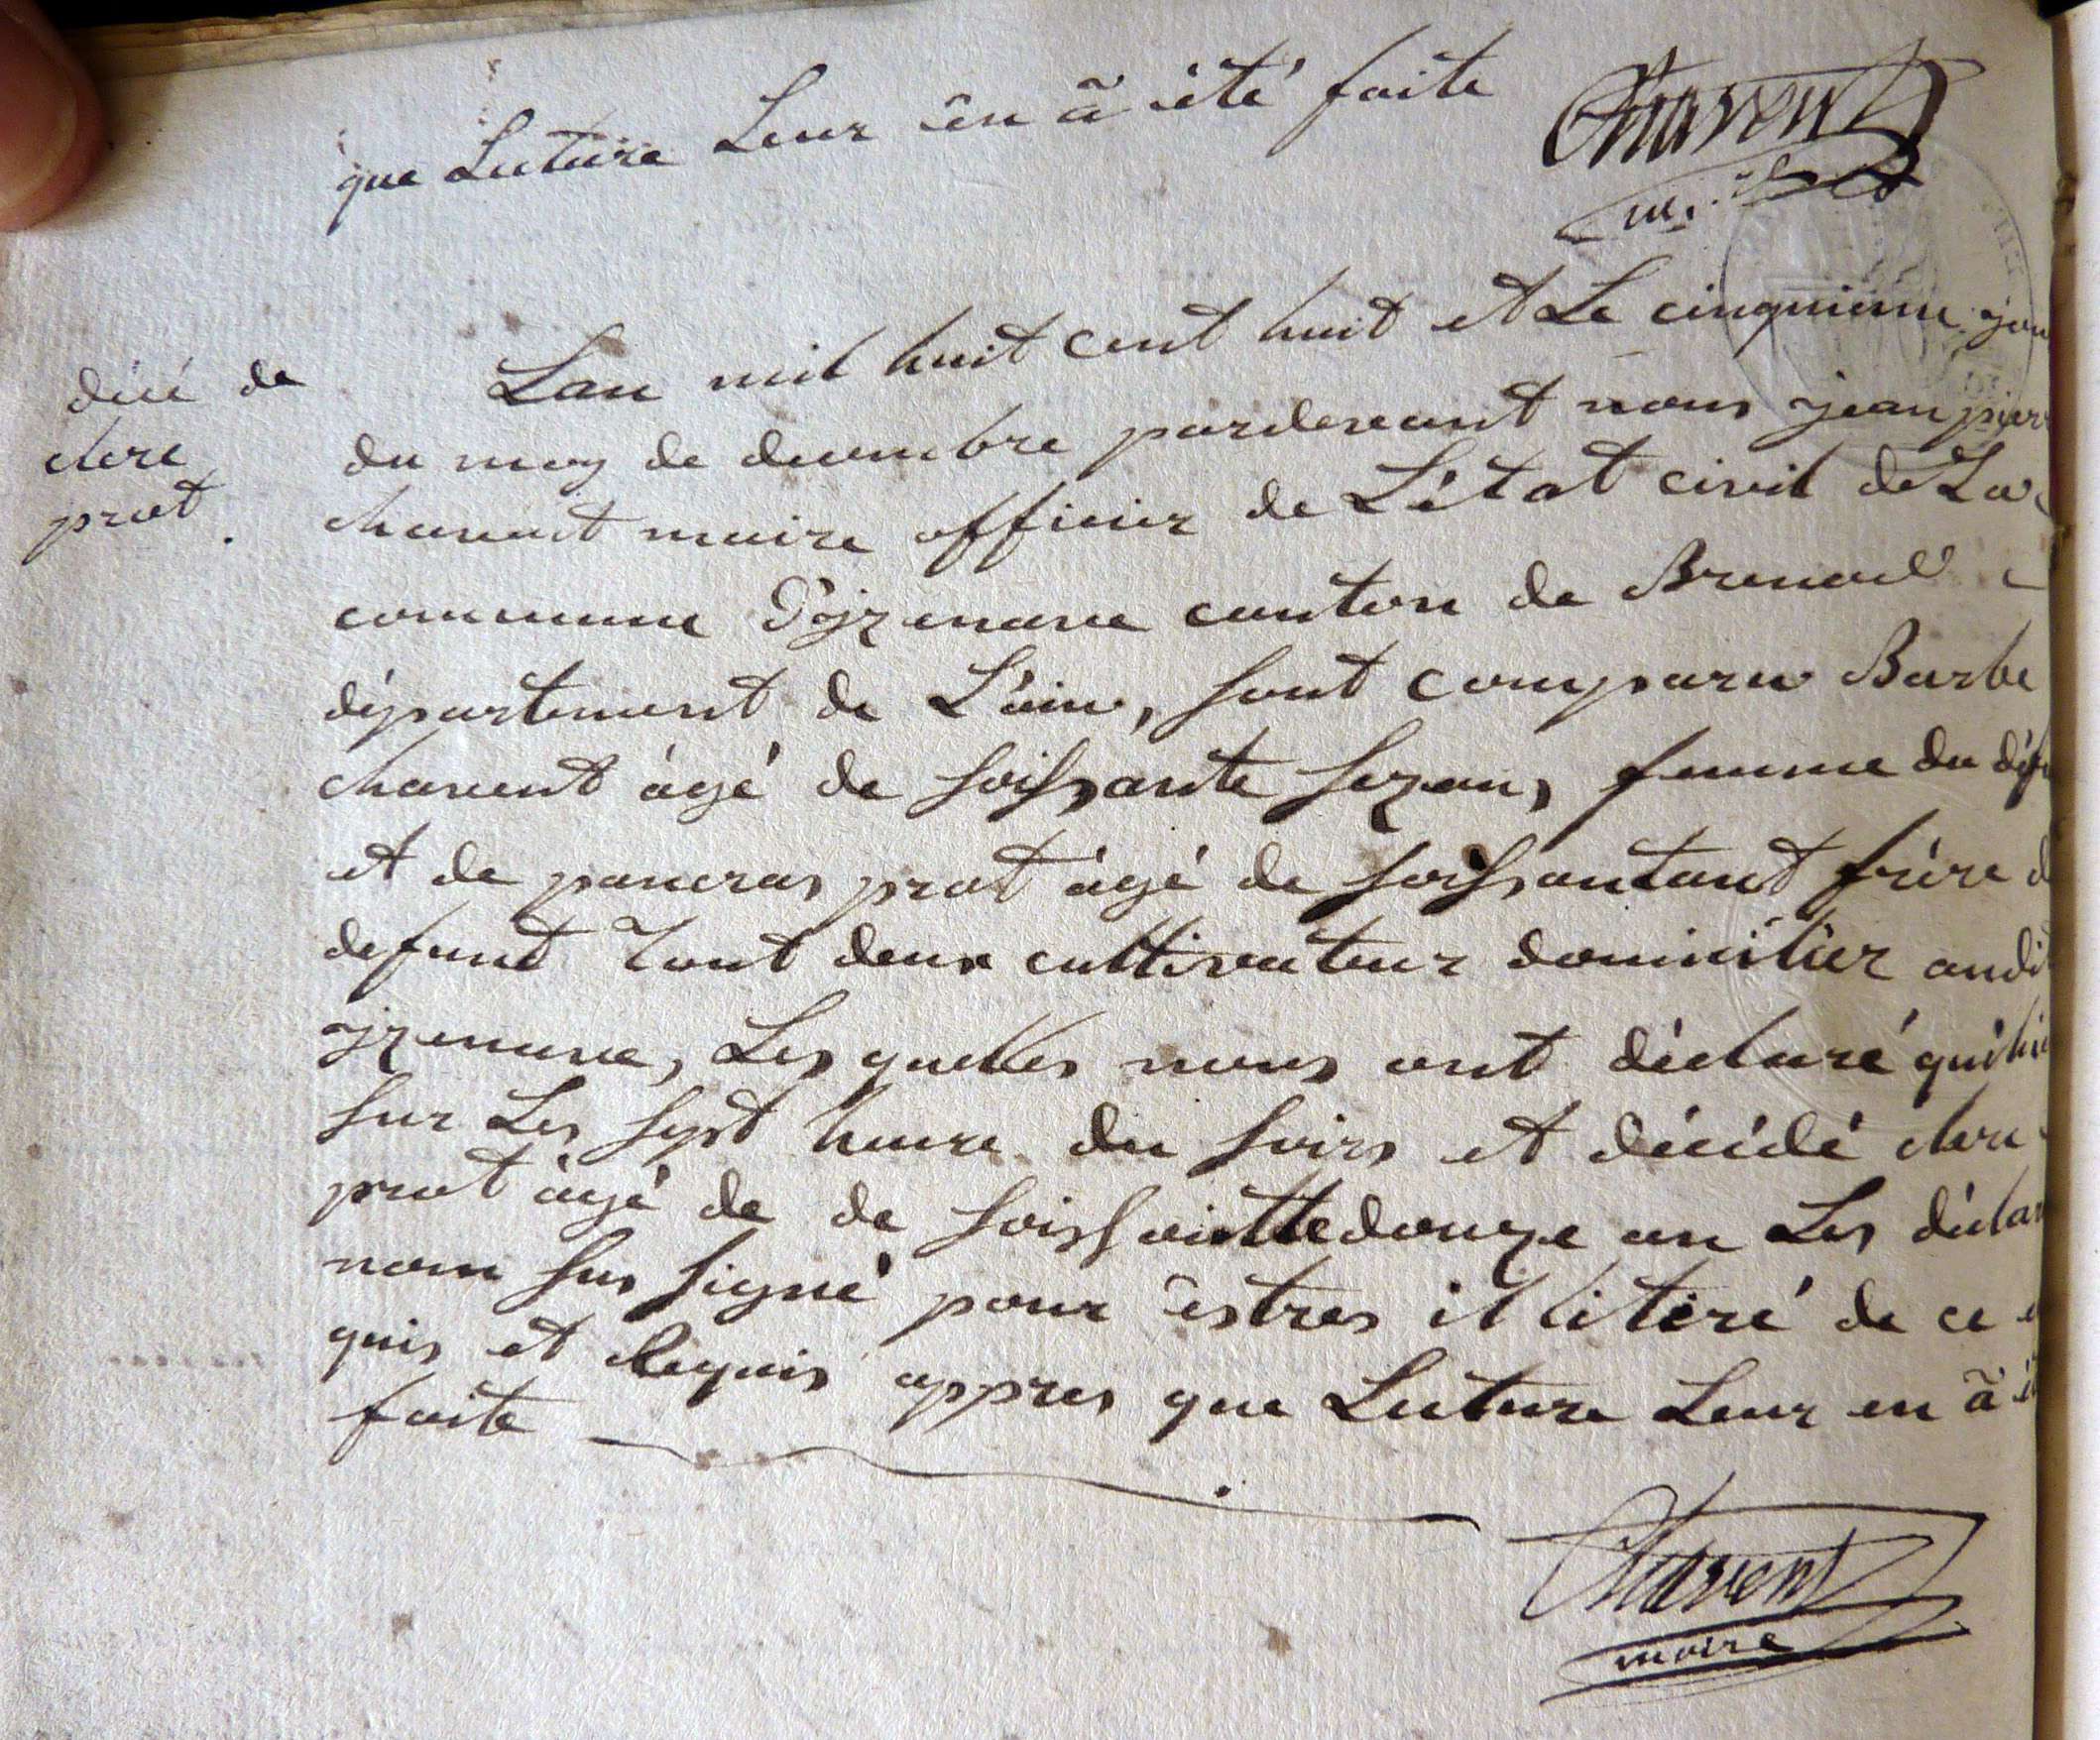 que Lecture Leur ên â été faite
Chavent
décé de
claire
prat.
Lan mil huit cent huit et Le cinquieme jou
du moy de decembre pardevant nous jean pier
chavent maire officier de L'état civil de La
commune D'izenave canton de Brenod
département de L'ain, sont comparu Barbe
chavent àgé de soissante sezans, femme du déf
et de pancras prat àgé de soissantant frére d
defunt Tout deux culttivateur domicilier audi
izenave, Les quelles nous ont déclaré qui hie
sur Les sept heure du soirs et décédé clau
prat àgé de de soissainttedouze an Les déclar
nom sus signé pour êstres illitéré de ce e
quis et Requis appres que Lecture Leur en â ét
faite
Chavent
maire